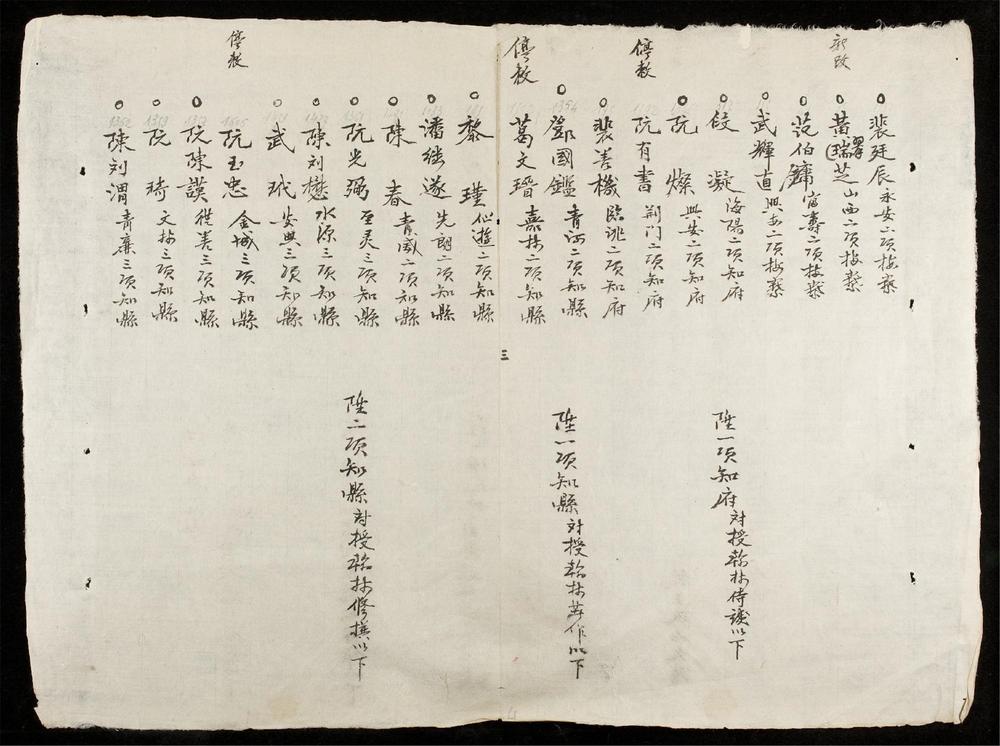 裴廷辰 永安二項按察
新改
黃瑞芝 山西二項按察
范伯鏞 富壽二項按察
武輝直 興安二項按察
段凝 海陽二項知府
阮燦 興安二項知府
停教
阮有書 荆門二項知府
裴善機 臨洮二項知府
陞一項知府対授翰林侍讀以下
鄧國鑑 青河二項知縣
停教
葛文瑨 嘉林二項知縣
陞一項知縣対授翰林著作以下
三
黎瑾 仙遊二項知縣
潘継遂 先朗二項知縣
陳春 青威二項知縣
阮光弼 至灵三項知縣
陳刘懋 水源三項知縣
武玳 安興三項知縣
停教
阮玉忠 金城三項知縣
阮陳謨 從善三項知縣
阮琦 文林三項知縣
陳刘渭 青廉三項知縣
陞二項知縣対授翰林修撰以下